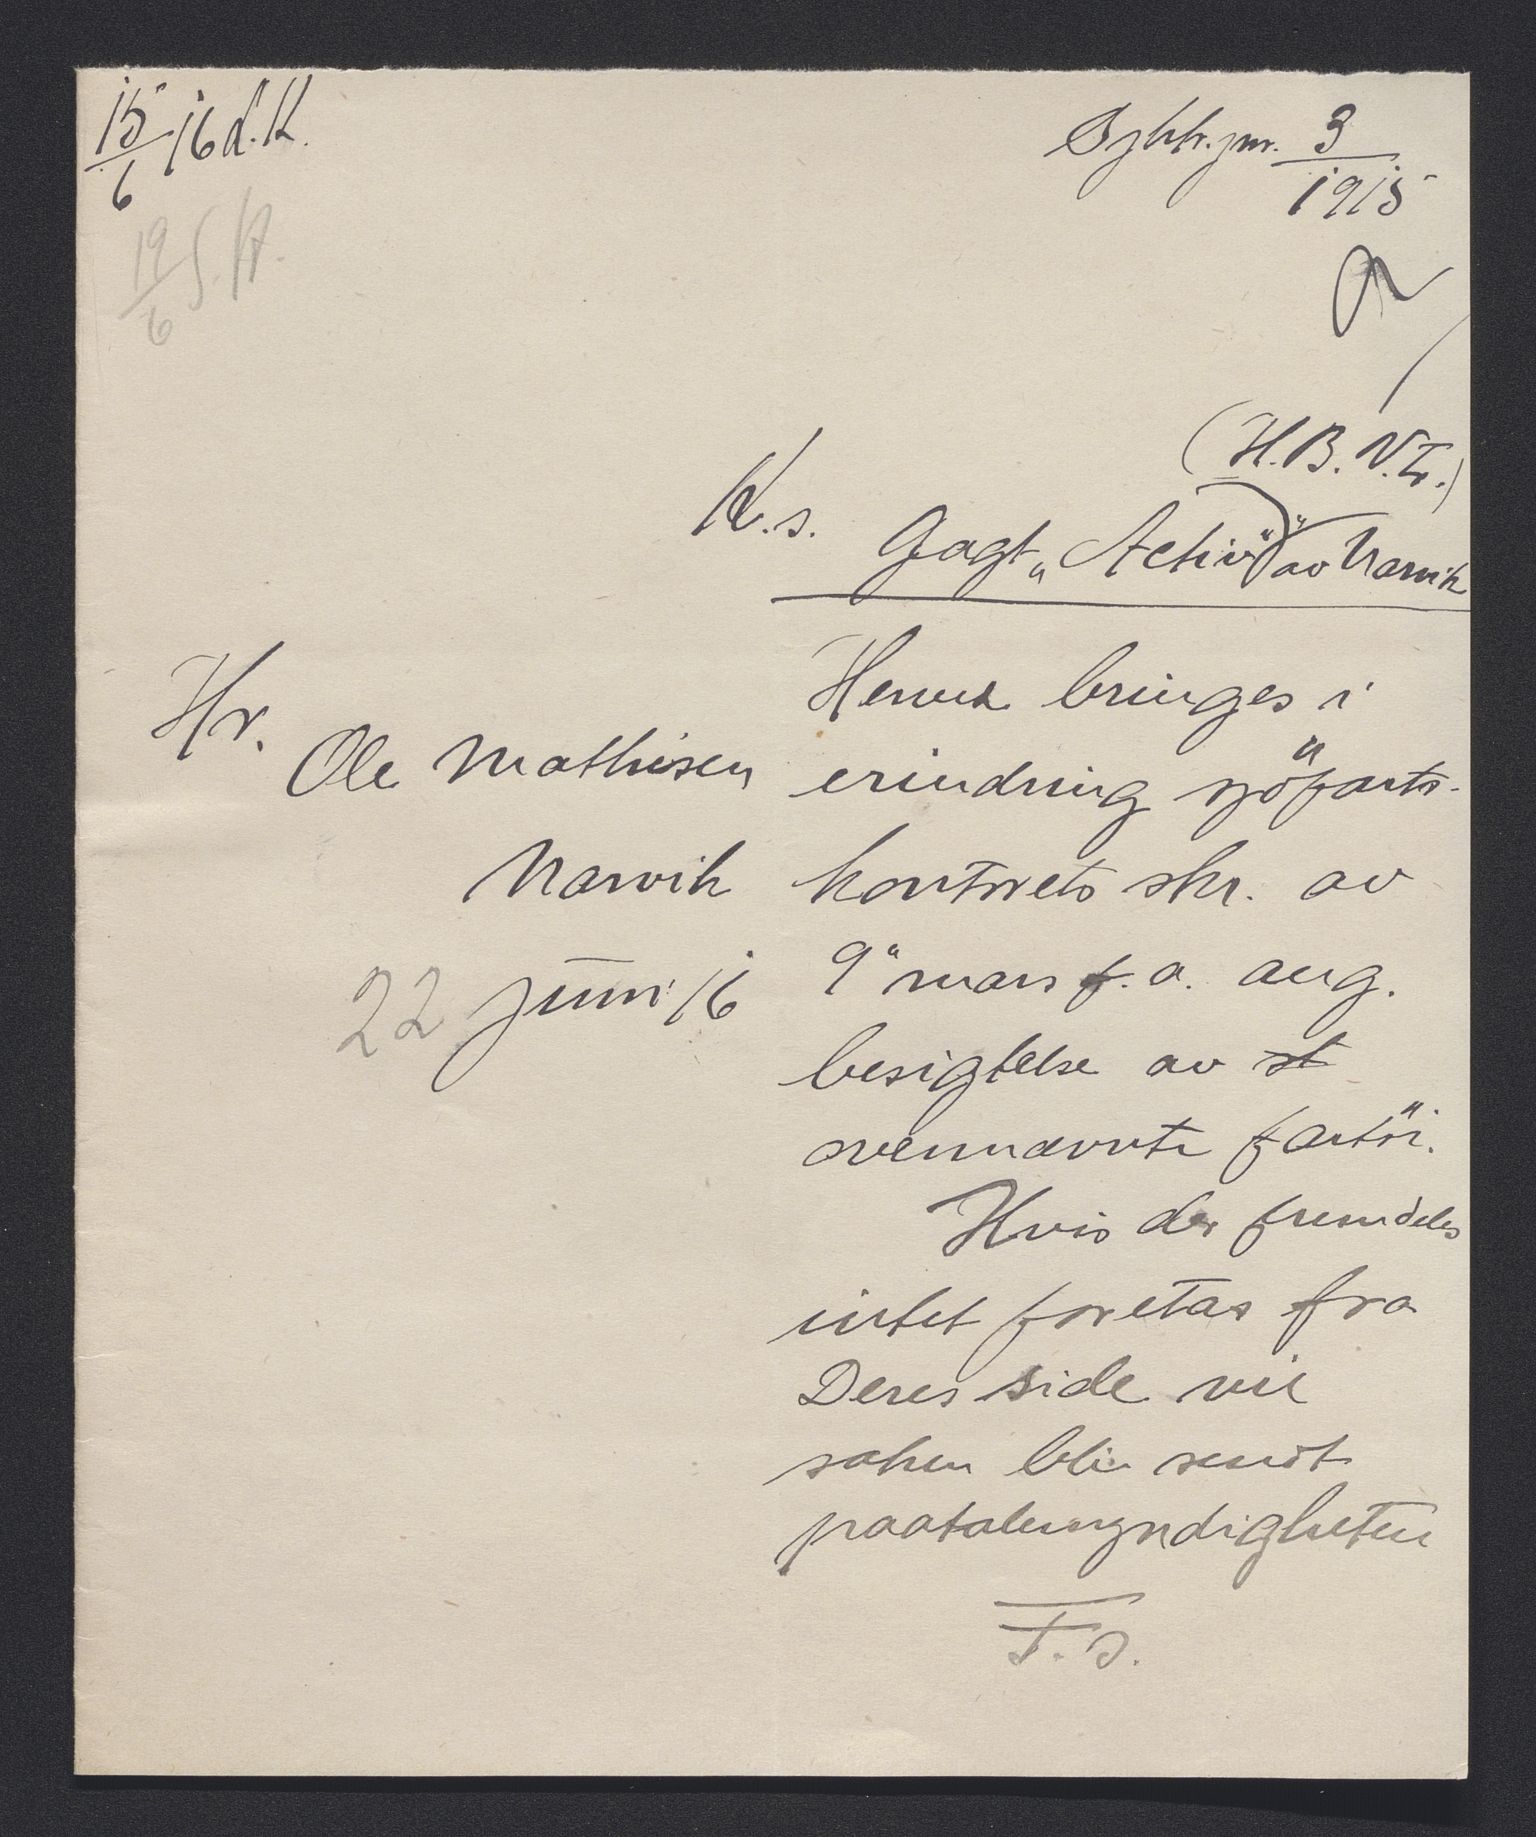 15/6 16 d.K.
19/6 S.A.
jnr. 3/1915
(H.B.N.Tr.)
K.s. Jagt „Activ" av Narvik
Hr.
Ole Mathisen
Narvik
22 juni 16
Herved bringes i
erindring sjöfarts-
kontorets skr. av
9" mars f.a. ang.
besigtelse av st
ovennævnte fartöi.
Hvis der fremdeles
intet foretas fra
Deres side vil
saken bli sendt
paatalemyndigheten
F.S.